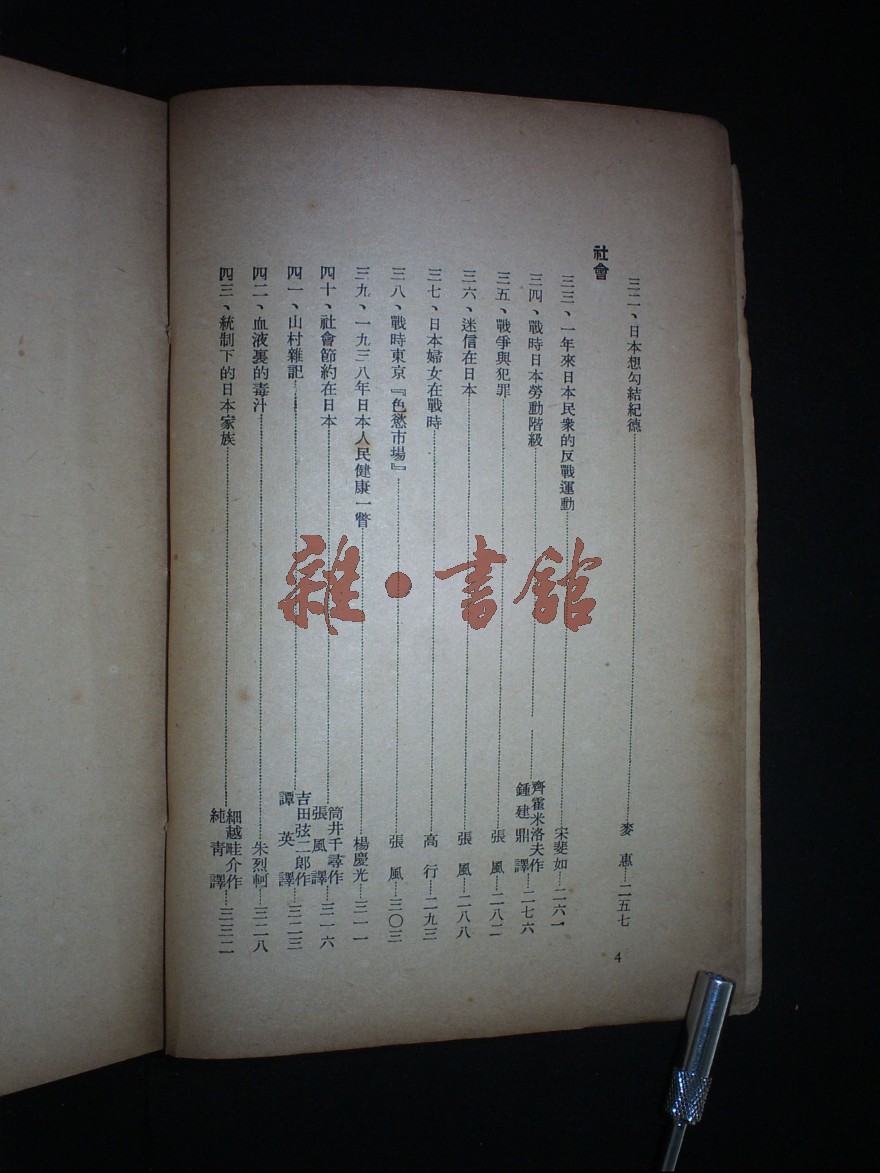 三二、日本想勾結紀德……麥　惠……二五七
社會
三三、一年來日本民衆的反戰運動……宋斐如……二六一
三四、戰時日本勞動階級……齊霍米洛夫作 鍾建鼎譯……二七六
三五、戰爭與犯罪……張　風……二八二
三六、迷信在日本……張　風……二八八
三七、日本婦女在戰時……高　行……二九三
三八、戰時東京『色慾市場』……張　風……三〇三
三九、一九三八年日本人民健康一瞥……楊慶光……三一一
四十、社會節約在日本……筒井千尋作 張風譯……三一六
四一、山村雜記……吉田弦二郎作 譚英譯……三二三
四二、血液裏的毒汁……朱烈軻……三二八
四三、統制下的日本家族……細越畦介作 純青譯……三三二
4
雜·書館